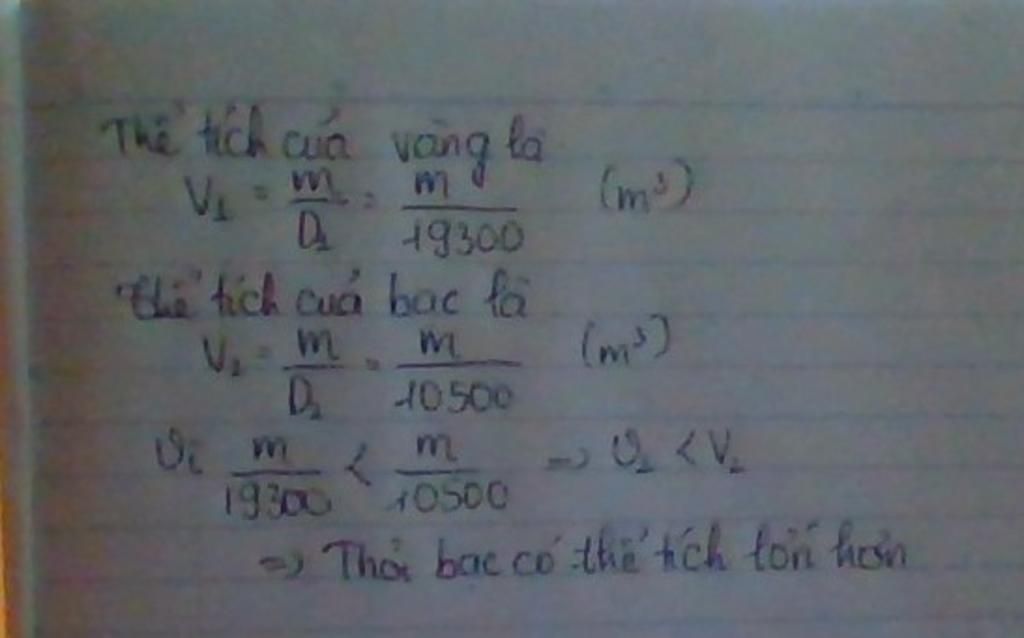 Thể tích của vàng là
V₁ = m/D₁ = m/19300 (m³)
Thể tích của bạc là
V₂ = m/D₂ = m/10500 (m³)
Vì m/19300 < m/10500 => V₁ < V₂
=> Thỏi bạc có thể tích lớn hơn